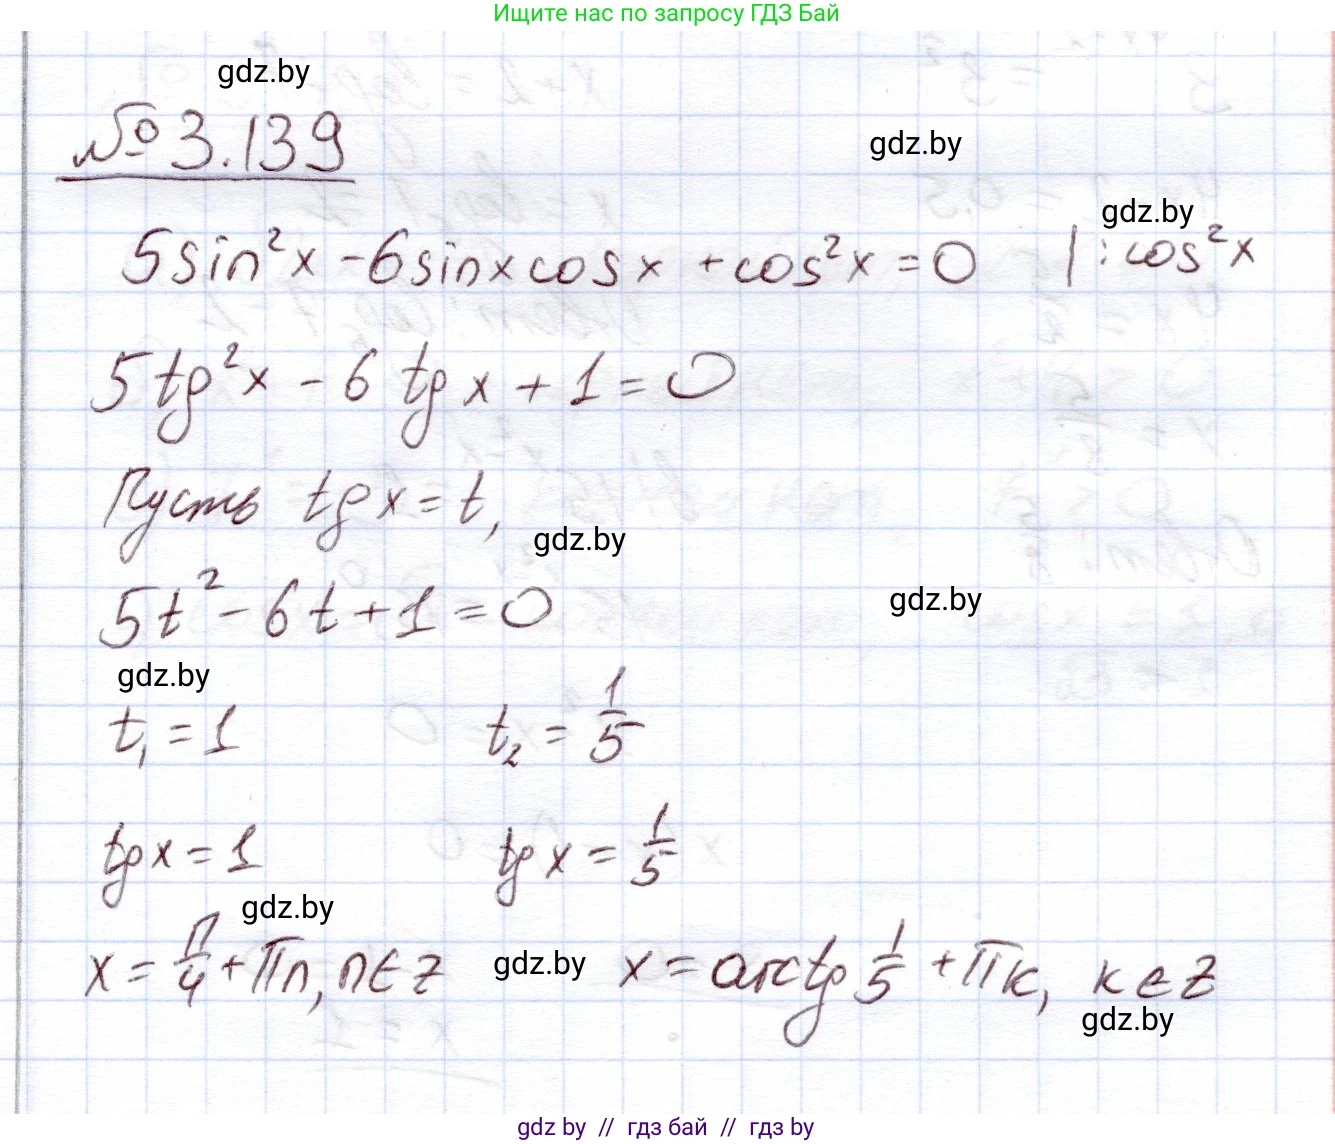 Ищите нас по запросу ГДЗ Бай
gdz.by
№ 3.139
gdz.by
gdz.by
5sin²x - 6sinxcosx + cos²x = 0 | : cos²x
5tg²x - 6 tgx + 1 = 0
Пусть tgx = t,
gdz.by
5t² - 6t + 1 = 0
gdz.by
gdz.by
t₁ = 1 t₂ = 1/5
tgx = 1 tgx = 1/5
gdz.by
x = π/4 + πn, n∈z gdz.by x = arctg 1/5 + πk, k∈z
gdz.by
gdz by // гдз бай // гдз by